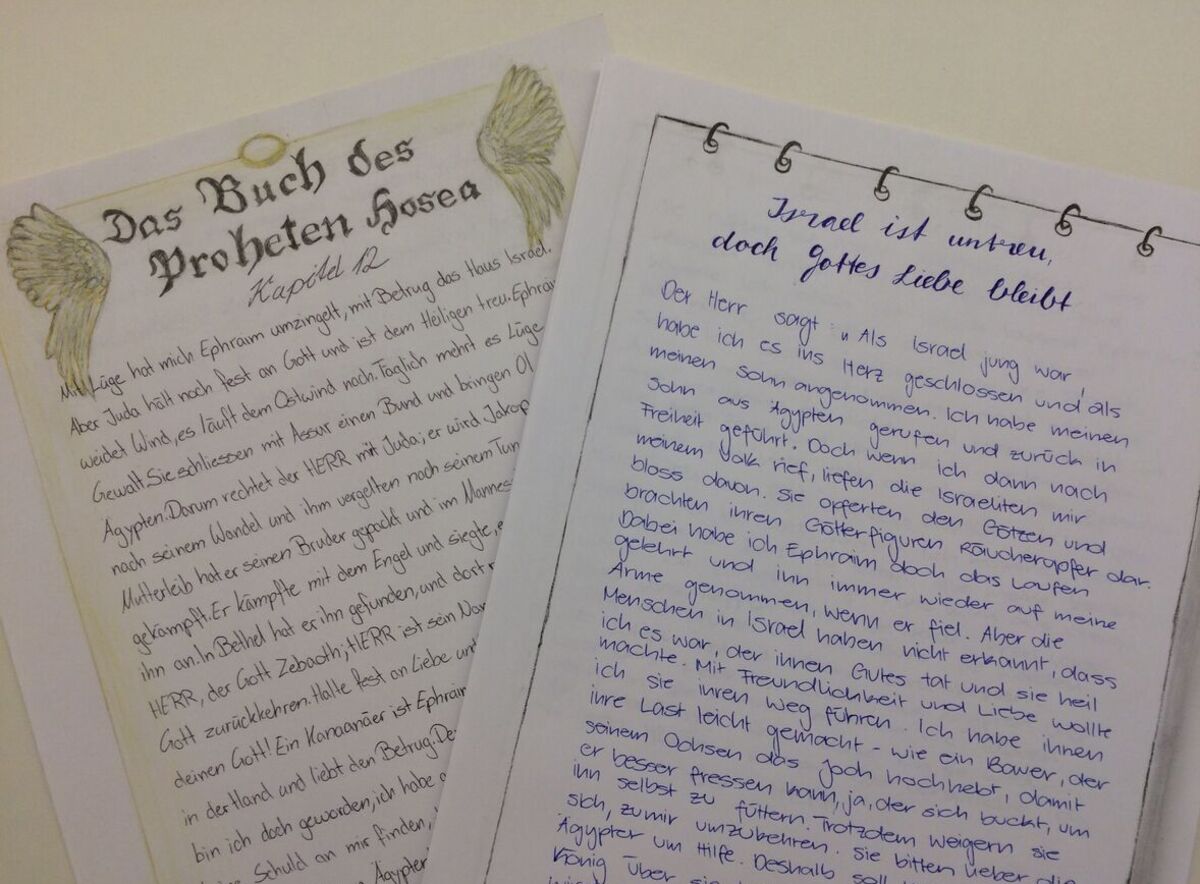 Das Buch des
Proheten Hosea
Kapitel 12
Mit Lüge hat mich Ephraim umzingelt, mit Betrug das Haus Israel.
Aber Juda hält noch fest an Gott und ist dem Heiligen treu. Ephraim
weidet Wind, es läuft dem Ostwind nach. Täglich mehrt es Lüge
Gewalt. Sie schliessen mit Assur einen Bund und bringen Öl
Ägypten. Darum rechtet der HERR mit Juda; er wird Jakop
nach seinem Wandel und ihm vergelten nach seinem Tun
Mutterleib hat er seinen Bruder gepackt und im Mannes
gekämpft. Er kämpfte mit dem Engel und siegte, e
ihn an. In Bethel hat er ihn gefunden, und dort r
HERR, der Gott Zebaoth; HERR ist sein Nam
Gott zurückkehren. Halte fest an Liebe un
deinen Gott! Ein Kanaanäer ist Ephraim
in der Hand und liebt den Betrug. De
bin ich doch geworden, ich habe
Schuld an mir finden,
Ägypter
Israel ist untreu,
doch Gottes Liebe bleibt
Der Herr sagt: „Als Israel jung war,
habe ich es ins Herz geschlossen und als
meinen Sohn angenommen. Ich habe meinen
Sohn aus Ägypten gerufen und zurück in
Freiheit geführt. Doch wenn ich dann nach
meinem Volk rief, liefen die Israeliten mir
bloss davon. Sie opferten den Götzen und
brachten ihren Götterfiguren Räucheropfer dar.
Dabei habe ich Ephraim doch das Laufen
gelehrt und ihn immer wieder auf meine
Arme genommen, wenn er fiel. Aber die
Menschen in Israel haben nicht erkannt, dass
ich es war, der ihnen Gutes tat und sie heil
machte. Mit Freundlichkeit und Liebe wollte
ich sie ihren Weg führen. Ich habe ihnen
ihre Last leicht gemacht - wie ein Bauer, der
seinem Ochsen das Joch hochhebt, damit
er besser fressen kann, ja, der sich bückt, um
ihn selbst zu füttern. Trotzdem weigern sie
sich, zu mir umzukehren. Sie bitten lieber die
Ägypter um Hilfe. Deshalb soll
König über sie